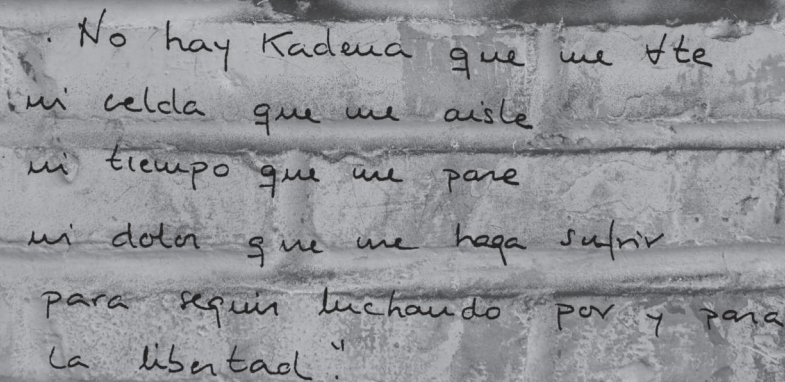 No hay Kadena que me ∀te
ni celda que me aisle
ni tiempo que me pare
ni dolor que me haga sufrir
para seguir luchando por y para
la libertad".